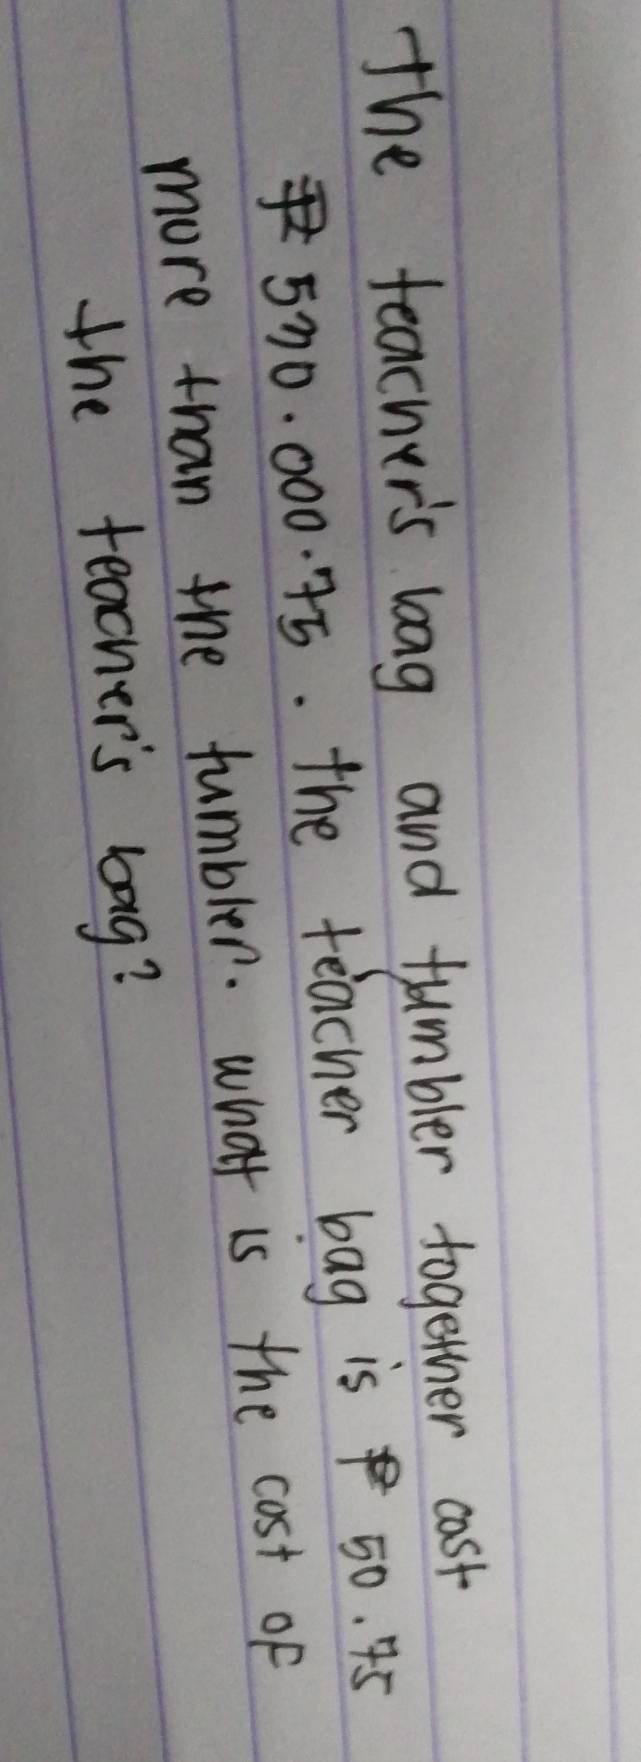 The teacher's bag and tumbler together cost
₱ 530.000.75. the teacher bag is ₱ 50.75
more than the tumbler. what is the cost of
the teacher's bag?